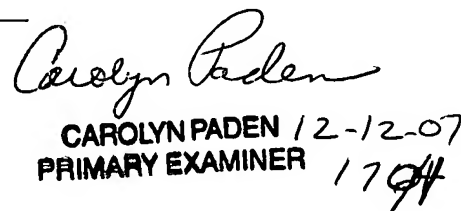 Carolyn Paden
CAROLYN PADEN 12-12-07
PRIMARY EXAMINER